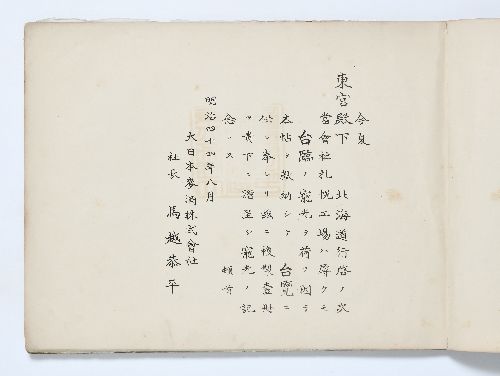 今夏
東宮殿下 北海道行啓ノ次
當會社札幌工場ハ辱クモ
台臨ノ寵光ヲ荷ノ因テ
本帖ヲ献納シテ 台覽ニ
供シ奉レリ茲ニ複製壹冊
ヲ貴下ニ贈呈シ寵光ノ記
念トス 頓首
明治四十四年八月
大日本麥酒株式會社
社長 馬越恭平